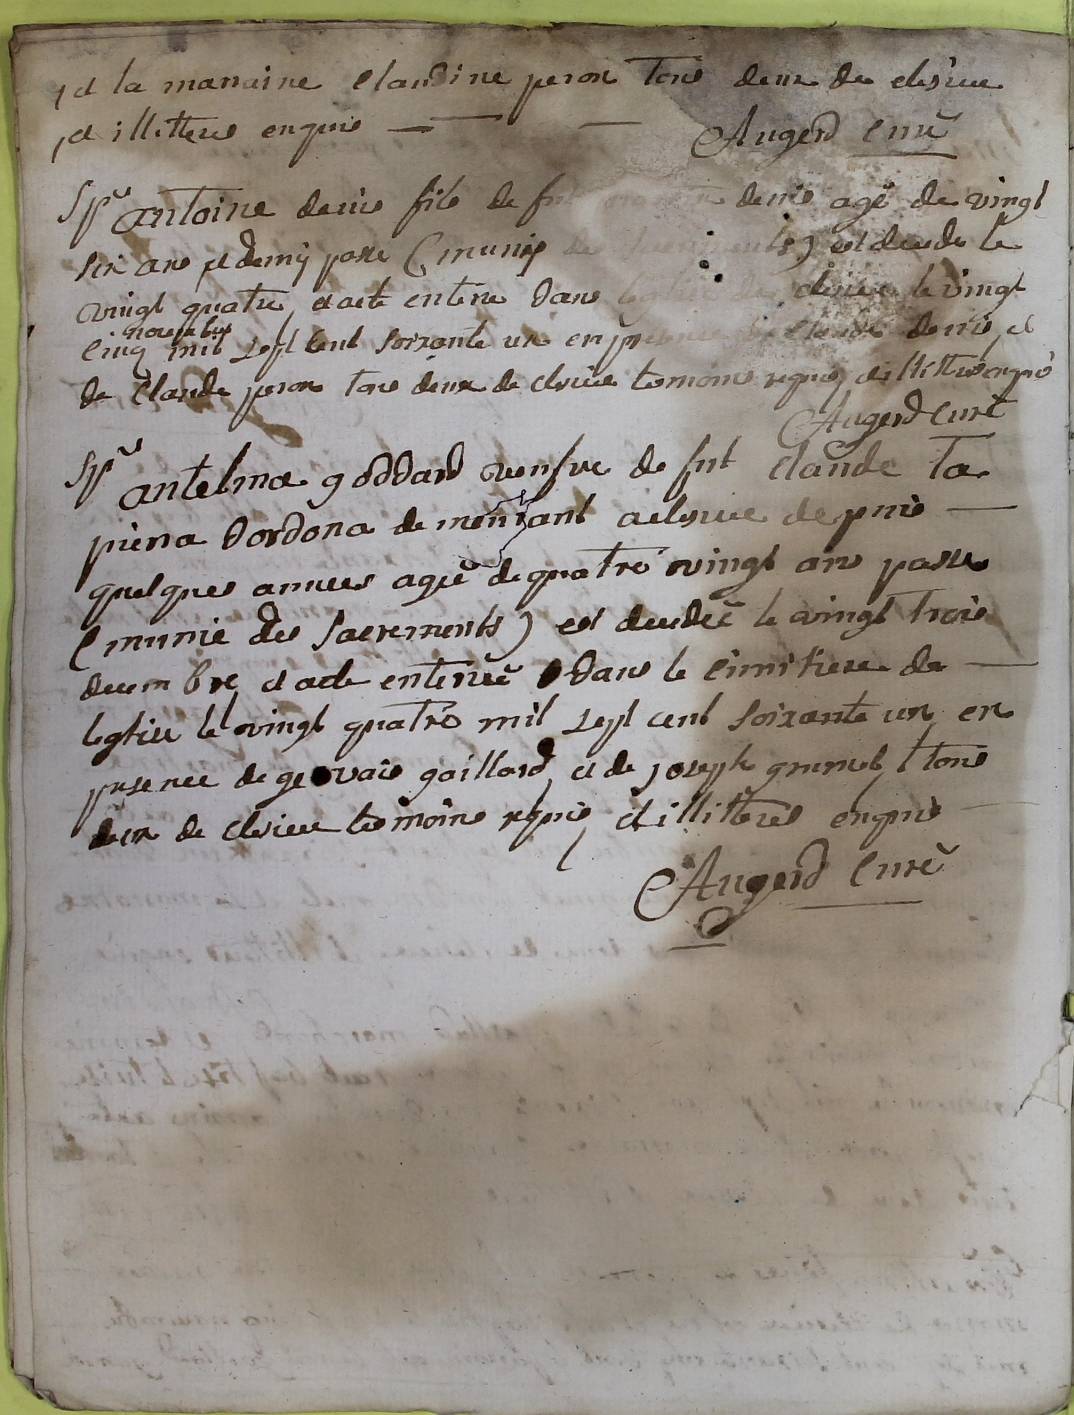 et la marraine claudine peron tous deux de clesieu
et illitteres enquis
Augerd curé
Spre antoine denis fils de fut denis agé de vingt
six ans et demy passe (munis des sacrements) est decede le
vingt quatre, et a ete enterre dans leglise de clesieu le vingt
novembre
cinq mil sept cent soixante un en presence de claude denis, et
de claude peron tous deux de clesieu temoins requis, et illitteres enquis
Augerd curé
Spre antelma goddard veufve de fut claude la
pierra dordona de montant a clesieu depuis
quelques annees agee de quatre vingt ans passes
(munie des sacrements) est decedee le vingt trois
decembre, et a ete enterree dans le cimitiere de
leglise le vingt quatre mil sept cent soixante un, en
presence de gervais gaillard, et de joseph grumel, tous
deux de clesieu temoins requis, et illitteres enquis
Augerd curé